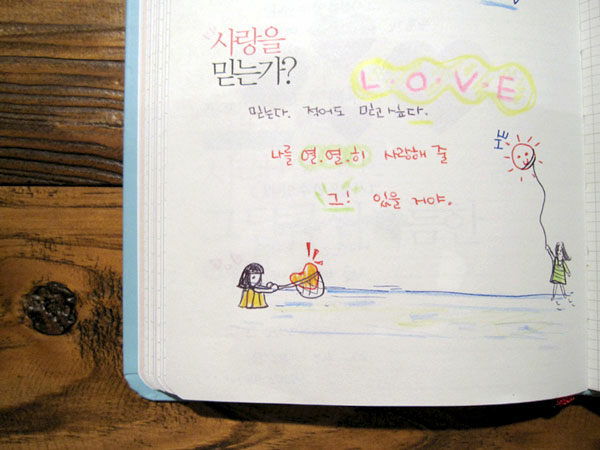 사랑을
믿는가?
L·O·V·E
믿는다. 적어도 믿고싶다.
나를 열.열.히 사랑해 줄
그! 있을 거야.